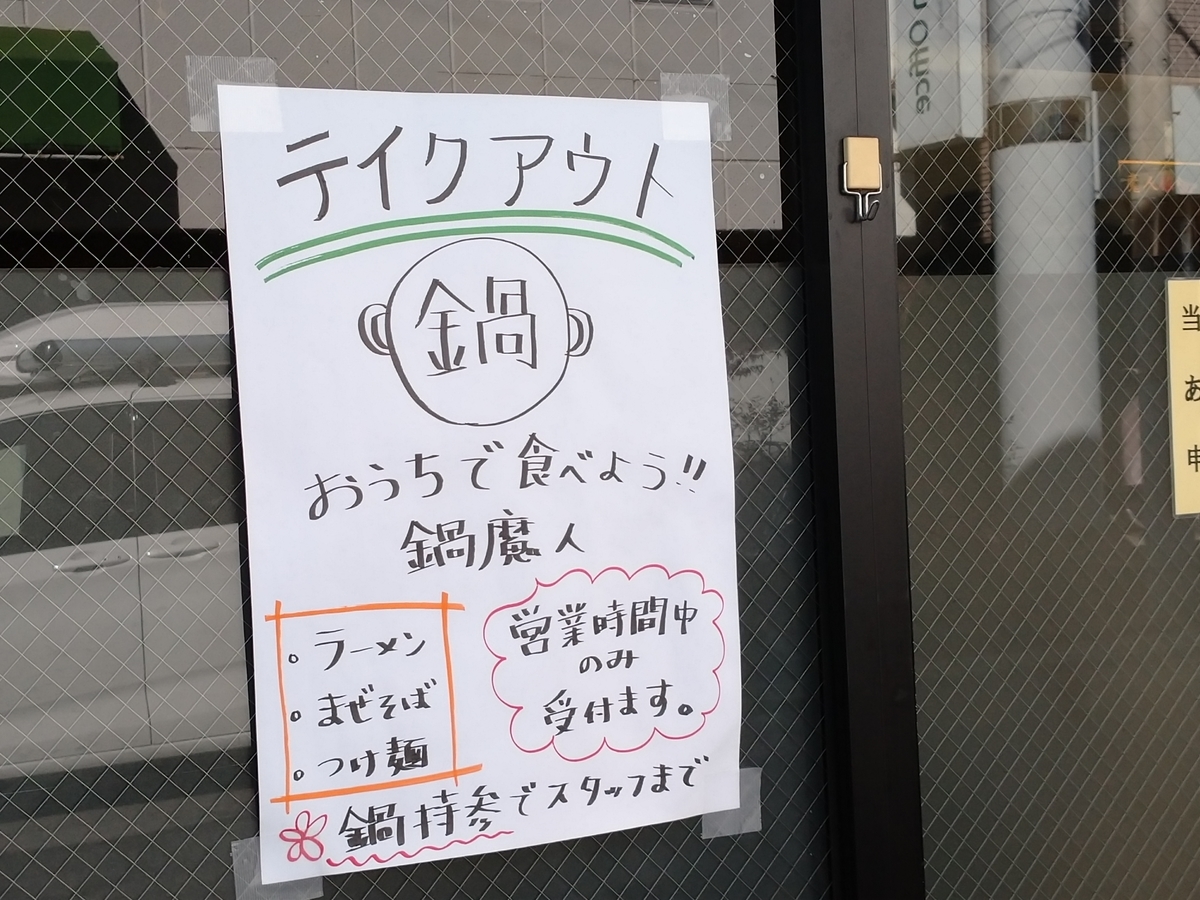 テイクアウト
鍋
おうちで食べよう!!
鍋魔人
。ラーメン
。まぜそば
。つけ麺
営業時間中
のみ
受付ます。
鍋持参でスタッフまで
Office
当
あ
申